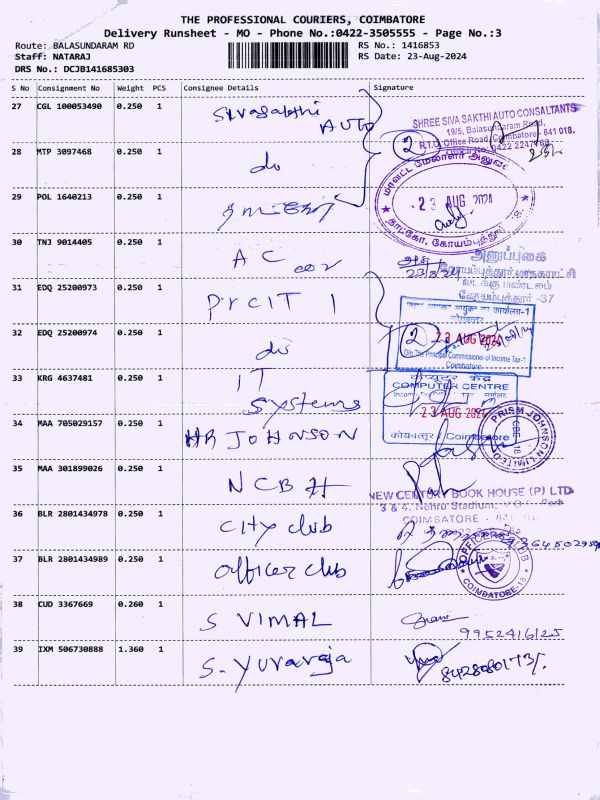 THE PROFESSIONAL COURIERS, COIMBATORE
Delivery Runsheet - MO - Phone No.:0422-3505555 - Page No.:3
Route: BALASUNDARAM RD
RS No.: 1416853
Staff: NATARAJ
RS Date: 23-Aug-2024
DRS No.: DCJB141685303
S No Consignment No Weight PCS Consignee Details Signature
27 CGL 100053490 0.250 1 Sivasakthi AUTO
SHREE SIVA SAKTHI AUTO CONSALTANTS
19/5, Balasundaram Road,
R.T.O. Office Road, Coimbatore - 641 018.
28 MTP 3097468 0.250 1 do 2
29 POL 1640213 0.250 1
23 AUG 2024
30 TNJ 9014405 0.250 1 A C
அனுப்புகை
கோயம்புத்தூர் மாநகராட்சி
வடக்கு மண்டலம்
கோயம்புத்தூர் -37
31 EDQ 25200973 0.250 1 PrCIT 1
32 EDQ 25200974 0.250 1 do 2
23 AUG 2024
O/o The Principal Commissioner of Income Tax-1
Coimbatore
33 KRG 4637481 0.250 1 IT Systems
कंप्यूटर केंद्र
COMPUTER CENTRE
23 AUG 2024
कोयम्बत्तूर / Coimbatore
34 MAA 705029157 0.250 1 HR JOHNSON
PRISM JOHNSON LIMITED
35 MAA 301899026 0.250 1 NCBH
NEW CENTURY BOOK HOUSE (P) LTD
3 & 4, Nehru Stadium,
COIMBATORE
36 BLR 2801434978 0.250 1 City club
37 BLR 2801434989 0.250 1 officer club
COIMBATORE-18
38 CUD 3367669 0.260 1 S VIMAL
9952416125
39 IXM 506730888 1.360 1 S. Yuvaraja
8428080173